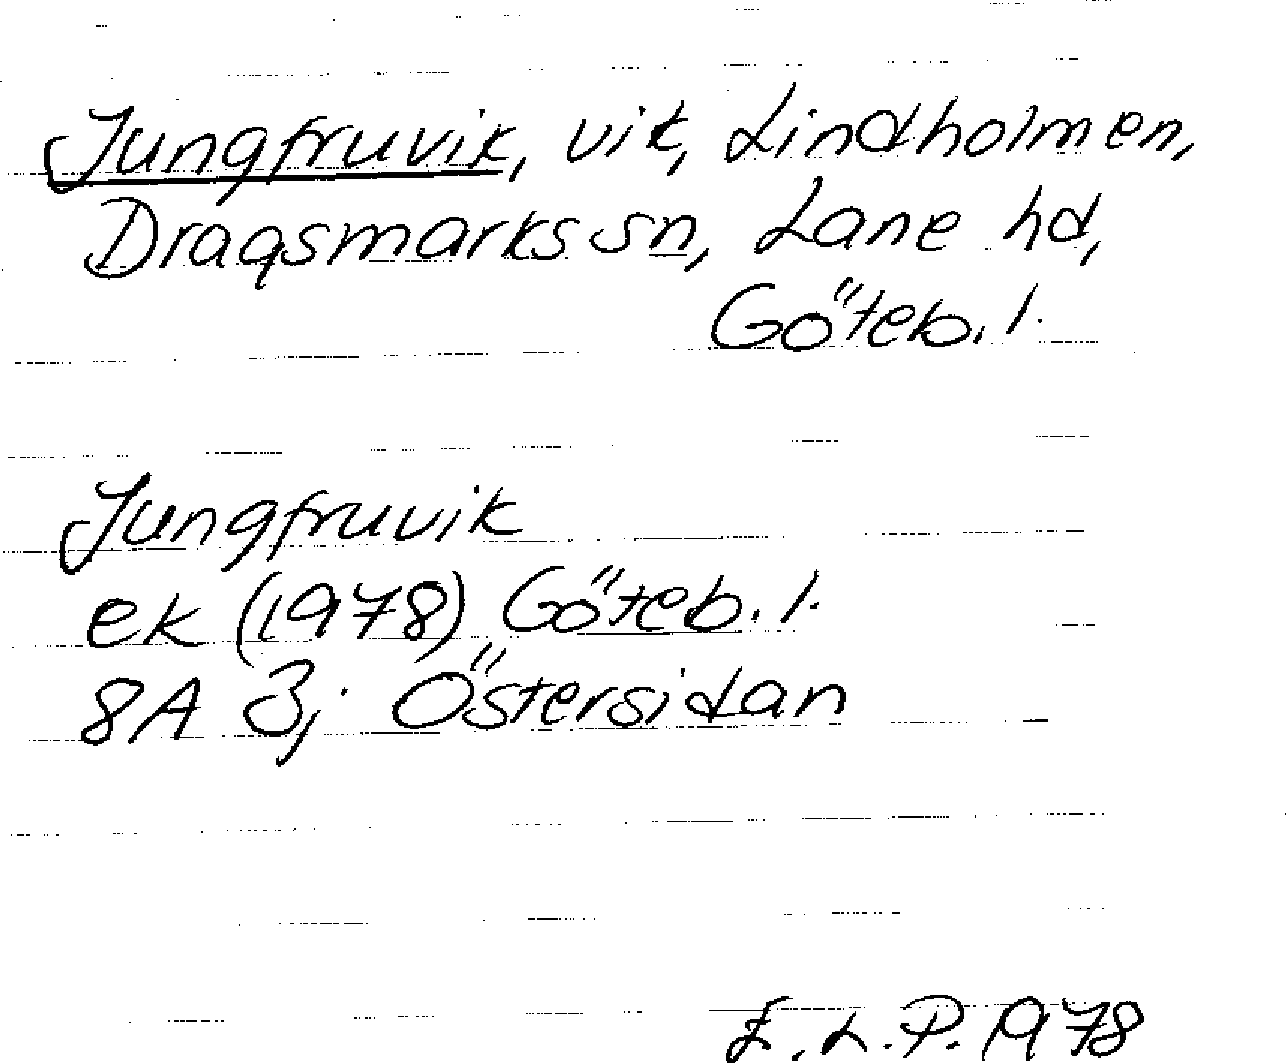 Jungfruvik, vik, Lindholmen,
Dragsmarks sn, Lane hd,
Göteb. l.
Jungfruvik
ek (1978) Göteb. l.
8A 3j Östersidan
E. L. P. 1978